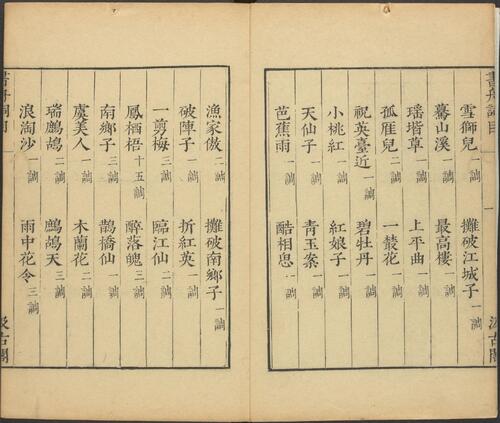 書舟詞目
雪獅兒 一調 攤破江城子 一調
驀山溪 一調 最高樓 一調
瑶堦草 一調 上平曲 一調
孤雁兒 二調 一叢花 一調
祝英臺近 一調 碧牡丹 一調
小桃紅 一調 紅娘子 一調
天仙子 一調 青玉案 一調
芭蕉雨 一調 酷相思 一調
漁家傲 二調 攤破南鄉子 一調
破陣子 一調 折紅英 一調
一剪梅 三調 臨江仙 一調
鳳栖梧 十五調 醉落魄 三調
南鄉子 三調 鵲橋仙 一調
虞美人 一調 木蘭花 二調
瑞鷓鴣 二調 鷓鴣天 三調
浪淘沙 一調 雨中花令 三調
書舟詞目 一 汲古閣